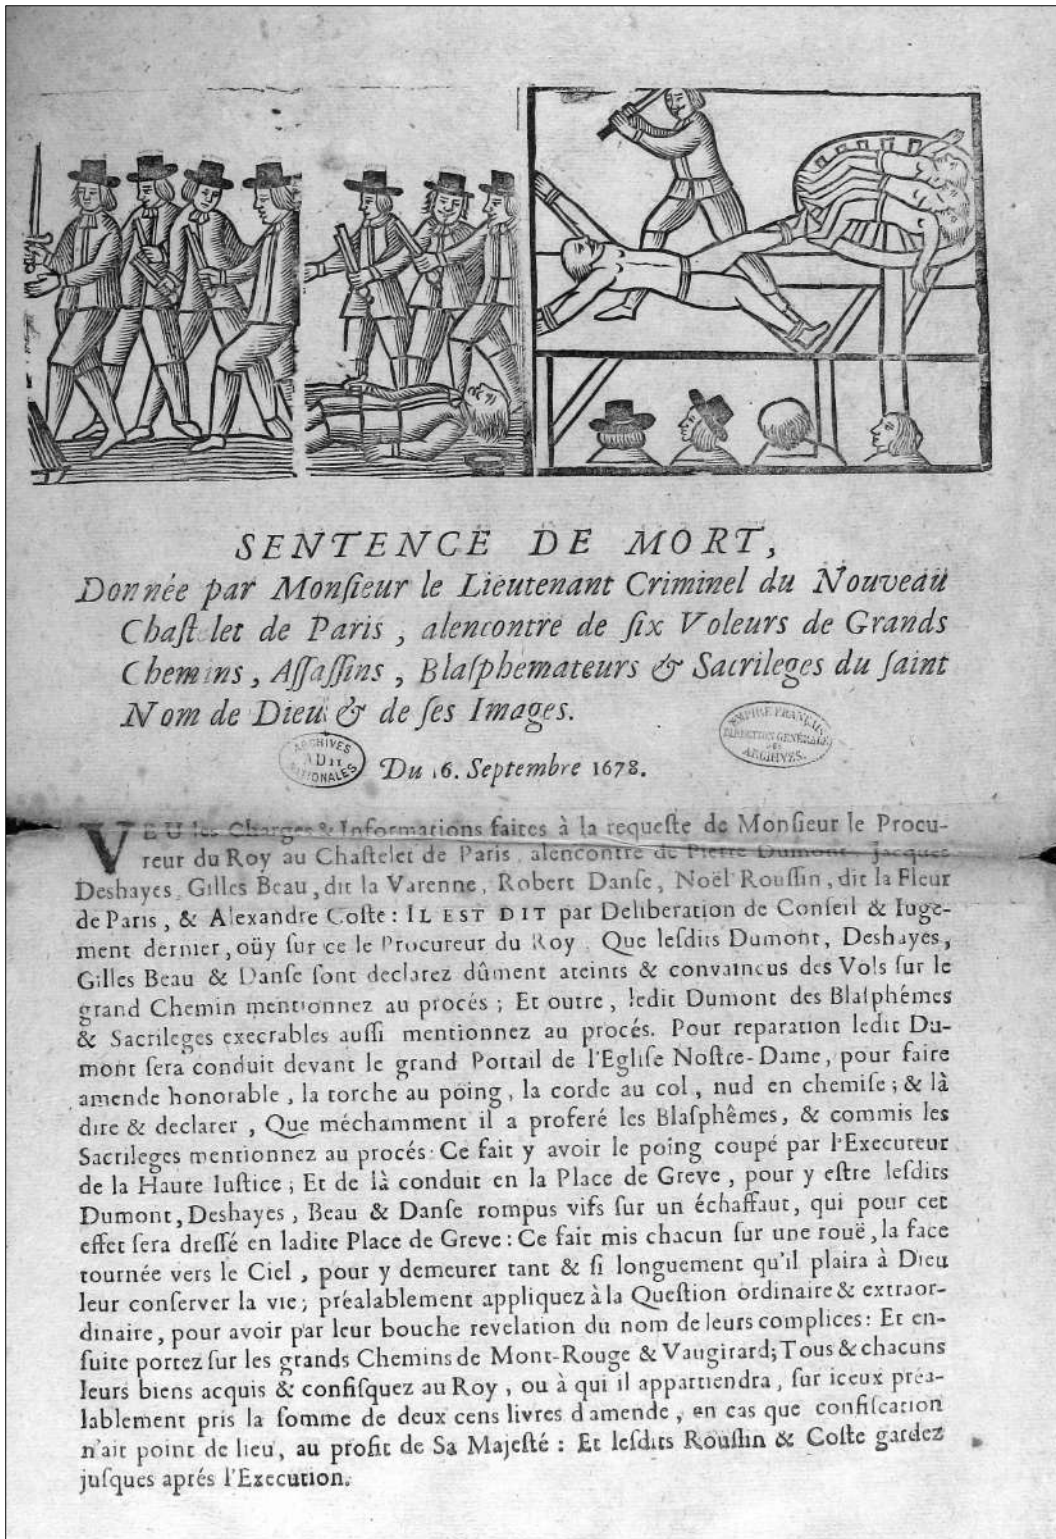 SENTENCE DE MORT,
Donnée par Monſieur le Lieutenant Criminel du Nouveau
Chaſtelet de Paris, alencontre de ſix Voleurs de Grands
Chemins, Aſſaſſins, Blaſphemateurs & Sacrileges du ſaint
Nom de Dieu & de ſes Images.
EMPIRE FRANÇAIS
DIRECTION GENÉRALE
DES
ARCHIVES.
ARCHIVES
NATIONALES
Du 16. Septembre 1678.
VEU les Charges & Informations faites à la requeſte de Monſieur le Procu-
reur du Roy au Chaſtelet de Paris, alencontre de Pierre Dumont, Jacques
Deshayes, Gilles Beau, dit la Varenne, Robert Danſe, Noël Rouſſin, dit la Fleur
de Paris, & Alexandre Coſte: IL EST DIT par Deliberation de Conſeil & Iuge-
ment dernier, oüy ſur ce le Procureur du Roy, Que leſdits Dumont, Deshayes,
Gilles Beau & Danſe ſont declarez dûment ateints & convaincus des Vols ſur le
grand Chemin mentionnez au procés; Et outre, ledit Dumont des Blaſphêmes
& Sacrileges execrables auſſi mentionnez au procés. Pour reparation ledit Du-
mont ſera conduit devant le grand Portail de l'Egliſe Noſtre-Dame, pour faire
amende honorable, la torche au poing, la corde au col, nud en chemiſe; & là
dire & declarer, Que méchamment il a proferé les Blaſphêmes, & commis les
Sacrileges mentionnez au procés: Ce fait y avoir le poing coupé par l'Executeur
de la Haute Iuſtice; Et de là conduit en la Place de Greve, pour y eſtre leſdits
Dumont, Deshayes, Beau & Danſe rompus vifs ſur un échaffaut, qui pour cet
effet ſera dreſſé en ladite Place de Greve: Ce fait mis chacun ſur une rouë, la face
tournée vers le Ciel, pour y demeurer tant & ſi longuement qu'il plaira à Dieu
leur conſerver la vie; préalablement appliquez à la Queſtion ordinaire & extraor-
dinaire, pour avoir par leur bouche revelation du nom de leurs complices: Et en-
ſuite portez ſur les grands Chemins de Mont-Rouge & Vaugirard; Tous & chacuns
leurs biens acquis & confiſquez au Roy, ou à qui il appartiendra, ſur iceux préa-
lablement pris la ſomme de deux cens livres d'amende, en cas que confiſcation
n'ait point de lieu, au profit de Sa Majeſté: Et leſdits Rouſſin & Coſte gardez
juſques aprés l'Execution.